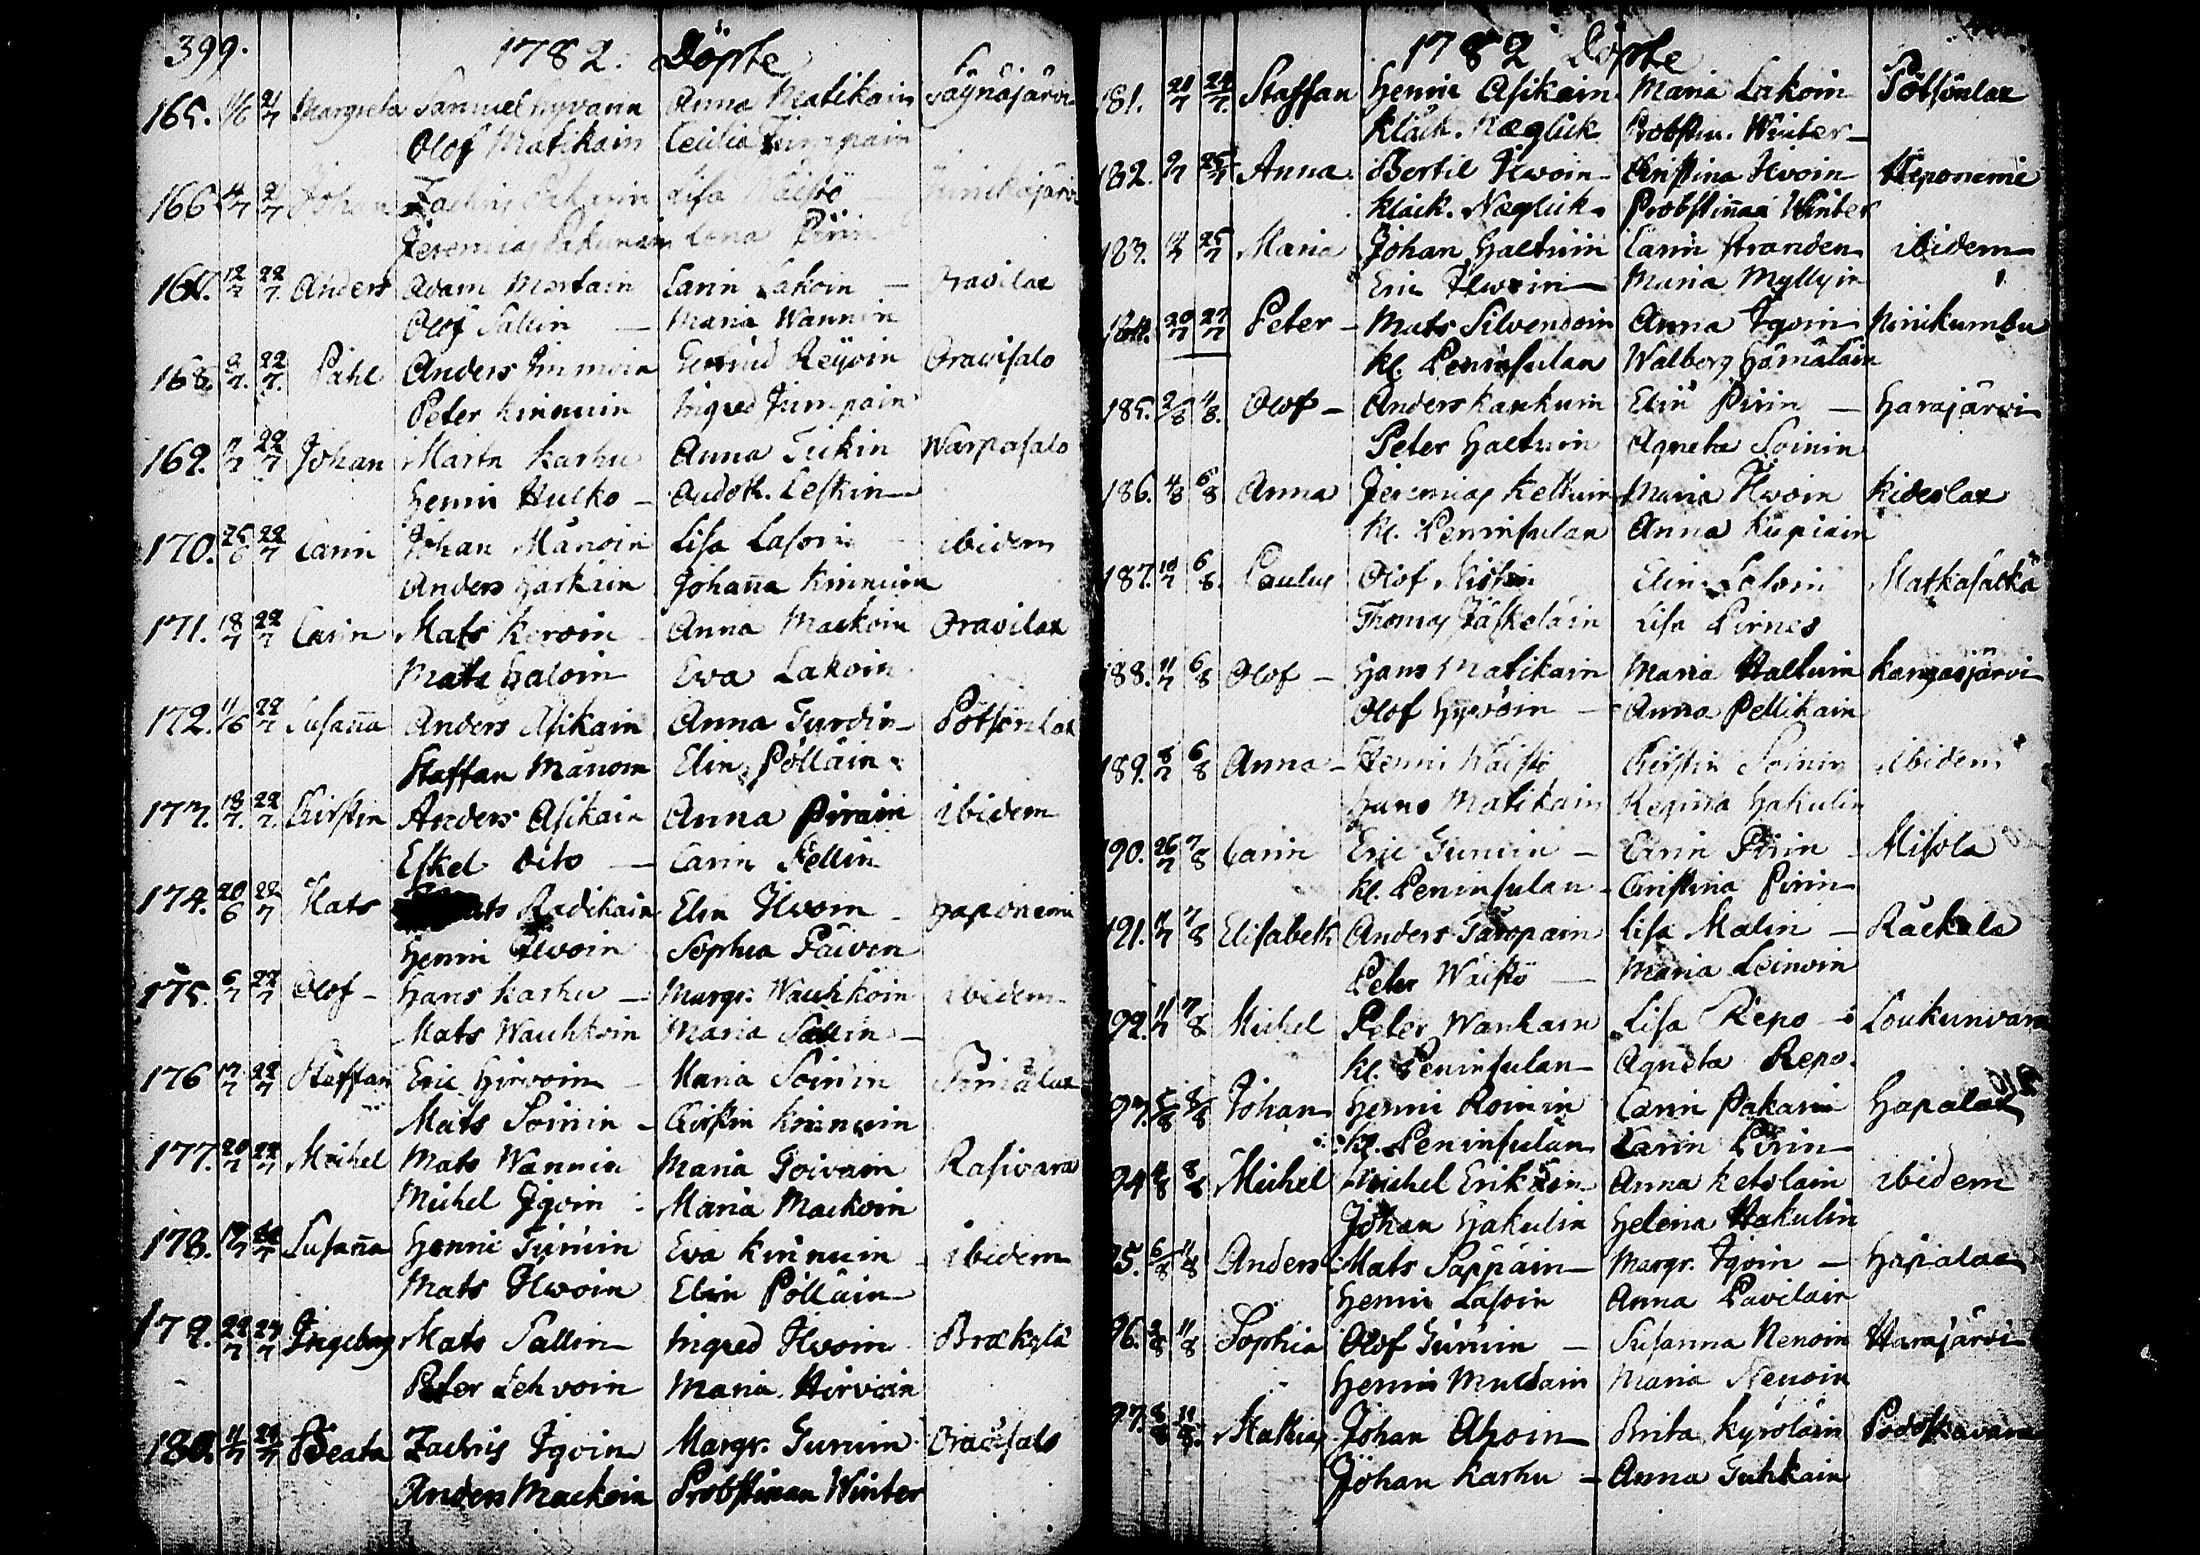 399. 1782. Döpte
165. 11/6 21/7 Margreta Samuel Hyvärin Anna Matikain Säynäjärvi
Olof Matikain Cecilia Timpain
166 4/7 21/7 Johan Zachris Pakarin Lisa Wäistö
Jeremias Pakarinen Lena Pirin
167. 12/7 22/7 Anders Adam Mertain Carin Lakoin — Oravilax
Olof Sallin — Maria Wannin
168. 9/7. 22/7. Påhl Anders Kinnuin Gertrud Reijoin Oravisalo
Peter Kinnuin Ingred Jumpain
169. 11/7 22/7 Johan Martn Karhu Anna Tiikin Warpasalo
Henric Hulko — Audoth. Leskin —
170. 25/6 22/7 Carin Johan Mänoin Lisa Lasoin — ibidem
Anders Härkäin Johaña Kinnuin
171. 18/7 22/7 Carin Mats Kervin — Anna Mackoin Oravilax
Mats Haloin Ewa Lakoin
172. 11/6 22/7 Susaña Anders Asikain Anna Turdin — Pötsönlax
Staffan Mänoin Elin Pölläin
173. 18/7. 22/7. Kirstin Anders Asikain Anna Pirain ibidem
Eskel dito — Carin Tellin
174. 20/6 22/7 Mats Mats Radikain Elin Ilwoin — Haponemi
Henric Ilwoin Sophia Päiven
175. 6/7 22/7 Olof — Hans Karhu — Margr. Wauhkoin ibidem
Mats Wauhkoin Maria Sallin —
176 17/7 22/7 Staffan Eric Hirvoin — Maria Soinin
Mats Soinin — Kirstin Kinnuin
177. 20/7 22/7 Michel Mats Wannin Maria Toivain Rasivara
Michel Igoin Maria Mackoin
178. 17/7 22/7 Susaña Henric Turuin Eva Kinnuin — ibidem
Mats Ilwoin Elin Pölläin —
179. 22/7 24/7 Ingeborg Mats Sallin — Ingred Ilwoin Bräkylä
Peter Lehvoin Maria Hirvoin
180. 11/7 24/7 Beata Zachris Igoin Margr. Turuin Oravisalo
Anders Mackoin Probstinnan Winter
1782 Döpte
181. 21/7 24/7. Staffan Henric Asikain Maria Lakoin Pötsönlax
Klåck. Næglick Probstin. Winter —
182. 9/7 25/7 Anna Bertil Ilwoin — Christina Ilvoin Haponemi
Klåck. Næglick. Probstiñan Winter
183. 14/7 25/7 Maria Johan Haltuin Carin Stranden ibidem —
Eric Ilwoin — Maria Myllyin
184. 20/7 27/7 Peter — Mats Silvendoin Anna Igoin Niinikumbu
Kl. Peninsulan Walborg Hämäläin
185. 2/8 4/8. Olof — Anders Kaukuin Elin Pirin — Harajärvi
Peter Haltuin Agneta Soinin
186. 4/8 6/8 Anna Jeremias Kettuin Maria Ilwoin Kideslax
Kl. Peninsulan Anna Kupiain
187. 14/7 6/8. Paulus Olof Elin Lasoin Matkasälkä
Thomas Jäskeläin Lisa Pirnes
188. 11/7 6/8 Olof — Hans Matikain Maria Haltuin Kangasjärvi
Olof Hyvöin — Anna Pellikain
189. 8/7 6/8 Anna — Henric Wäistö Kirstin Soinin ibidem
Hans Matikain Regina Hakulin
190. 26/7 7/8 Carin Eric Turuin — Carin Pirin — Misola
Kl. Peninsulan — Christina Pirin —
191. 11/7 7/8 Elisabeth Anders Taropain Lisa Malin — Räckälä
Peter Wäistö — Maria Leinoin
192. 11/7 7/8 Michel Peter Wanhain Lisa Repo — Loukunvara
Kl. Peninsulan — Agneta Repo.
93. 5/8 8/8 Johan Henric Roinin Carin Pakarin Hapalax
Kl. Peninsulan Carin Pirin —
94 4/8 8/8 Michel Michel Erikäin — Anna Ketolain ibidem
Johan Hakulin Helena Hakulin
95. 6/8 11/8 Anders Mats Säppäin — Margr. Igoin — Hapalax
Henric Lasoin Anna Pavilain
96. 9/8 11/8 Sophia Olof Turuin — Susanna Nenoin Harajärvi
Henric Mustain Maria Nenoin
97. 8/8 11/8. Mathias Johan Ahoin — Brita Kyröläin Podoskavara
Johan Karhu — Anna Tuhkain